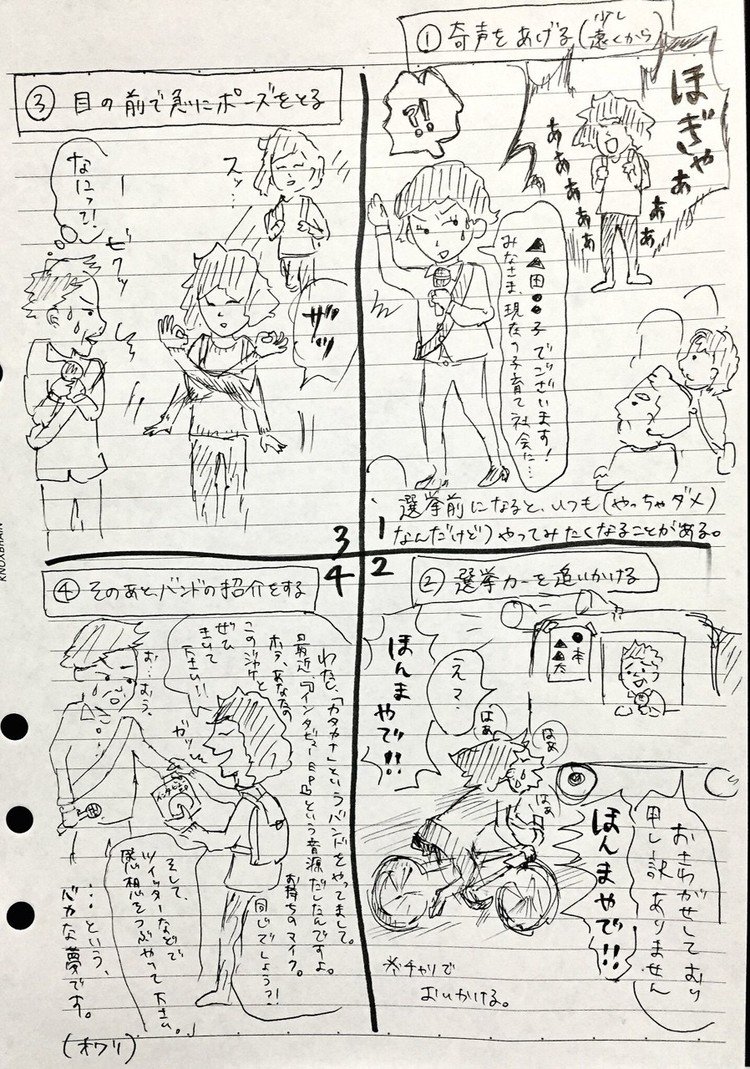 ① 奇声をあげる(少し遠くから)
ほぎゃぁ
ああああああ
ああ
?!
▲▲田●●子でございます!
みなさま現在の子育て社会に…
選挙前になると、いつも(やっちゃダメ
なんだけど)やってみたくなることがある。
1
2
② 選挙カーを追いかける
●本
▲▲太
ほんまやで!!
えマ…
はぁ
はぁ
はぁ
おさわがせしており
申し訳ありません
ほんまやで!!
※チャリで
おいかける。
3
③ 目の前で急にポーズをとる
スッ…
なにって!
ビクッ
ザッ
4
④ そのあとバンドの紹介をする
わたし、「カタカナ」というバンドをやってまして。
最近「インタビューEP」という音源だしたんですよ。
ホラ、あなたのお持ちのマイク。
このジャケと同じでしょう?!
ぜひ
きいて
下さい!!
お…おう、
ガッ
そして、
ツイッターなどで
感想をつぶやって下さい。」
…という、
バカな夢です。
(オワリ)
KNOXBRAIN